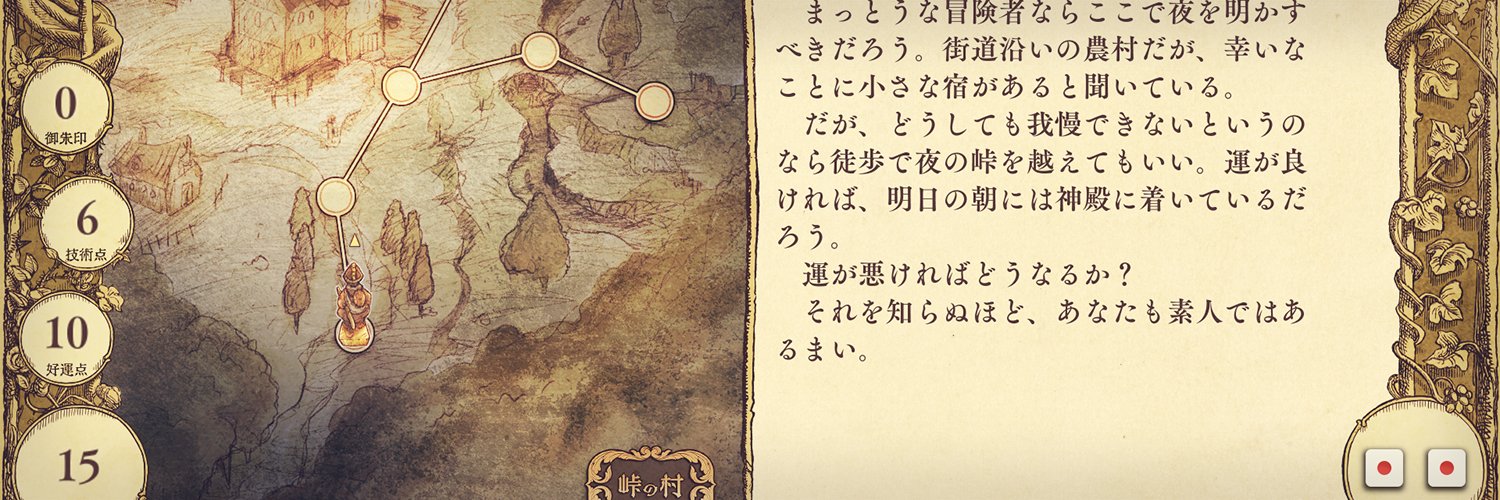 0
御朱印
6
技術点
10
好運点
15
峠の村
まっとうな冒険者ならここで夜を明かす
べきだろう。街道沿いの農村だが、幸いな
ことに小さな宿があると聞いている。
だが、どうしても我慢できないというの
なら徒歩で夜の峠を越えてもいい。運が良
ければ、明日の朝には神殿に着いているだ
ろう。
運が悪ければどうなるか？
それを知らぬほど、あなたも素人ではあ
るまい。